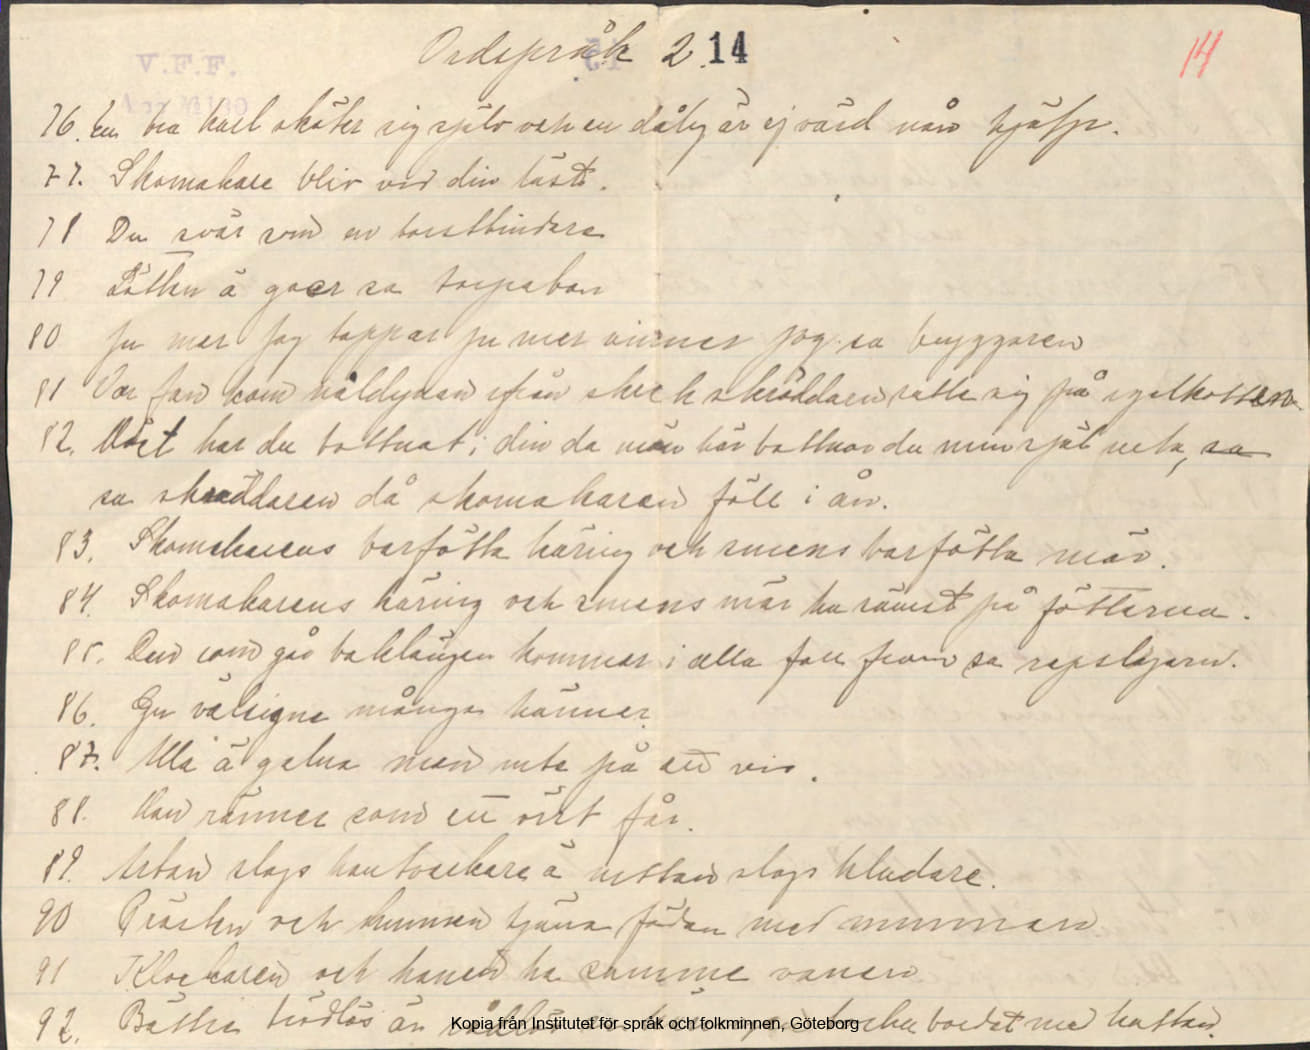 Ordspråk 2. 14
14
V.F.F.
76. En bra karl sköter sig själv och en dålig är ej värd nån hjälp.
77. Skomakare bliv vid din läst.
78 Du svär som en borstbindare
79 Lätten ä goer sa torpabon
80 Ju mer jag tappar ju mer vinner jag sa bryggaren
81 Var fan kom nåldynan ifrån skrek skräddaren satte sig på igelkotten
82. Väst har du bottnat i din da men här bottnar du min själ inte, sa
sa skräddaren då skomakaren föll i ån.
83. Skomakarens barfötta käring och smens barfötta märr.
84. Skomakarens käring och smens märr ha sämst på fötterna.
85. Den som går baklänges kommer i alla fall fram sa repslagarn.
86. Gu välsigne många hänner.
87. Alla ä galna men inte på ett vis.
88. Han ränner som ett yrt får.
89. Arton slags hantverkare ä nitton slags kludare.
90 Prästen och hunnen tjäna födan med munnen
91 Klockaren och hanen ha samme vanen
92. Bättre brödlös än rådlös sa käringen torka bordet med katten.
Kopia från Institutet för språk och folkminnen, Göteborg